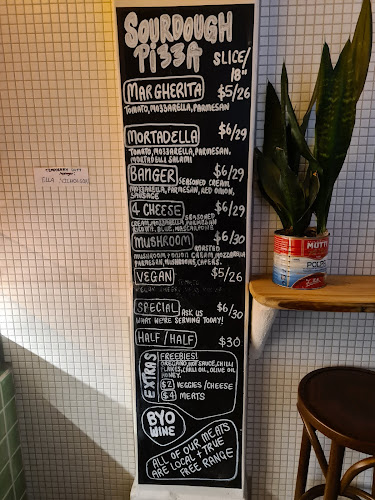 SOURDOUGH
PIZZA
SLICE/
18"
MARGHERITA $5/26
TOMATO, MOZZARELLA, PARMESAN
MORTADELLA $6/29
TOMATO, MOZZARELLA, PARMESAN,
MORTADELL SALAMI
BANGER $6/29
SEASONED CREAM,
MOZZARELLA, PARMESAN, RED ONION,
SAUSAGE
4 CHEESE $6/29
SEASONED
CREAM, MOZZARELLA, PARMESAN
BLUE, MASCARPONE
MUSHROOM $6/30
ROASTED
MUSHROOM + CREAM MOZZARELLA
PARMESAN, MUSHROOMS, CAPERS.
VEGAN $5/26
SPECIAL $6/30
ASK US
WHAT WE'RE SERVING TODAY!
HALF/HALF $30
EXTRAS
FREEBIES!
OREGANO, HOT SAUCE, CHILLI
FLAKES, CHILLI OIL, OLIVE OIL
HONEY.
$2 VEGGIES/CHEESE
$4 MEATS
BYO
WINE
ALL OF OUR MEATS
ARE LOCAL + TRUE
FREE RANGE
MUTTI
POLPA